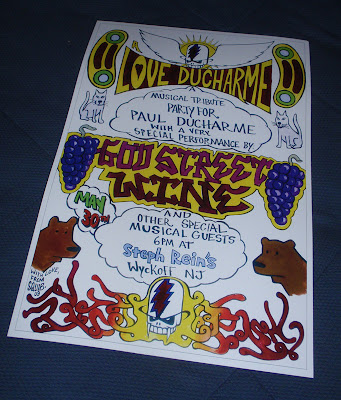 LOVE DUCHARME
MUSICAL TRIBUTE
PARTY FOR
PAUL DUCHARME
WITH A VERY
SPECIAL PERFORMANCE BY
GOD STREET
WINE
MAY
30TH
AND
OTHER SPECIAL
MUSICAL GUESTS
6PM AT
Steph Rein's
Wyckoff NJ
WITH LOVE,
FROM